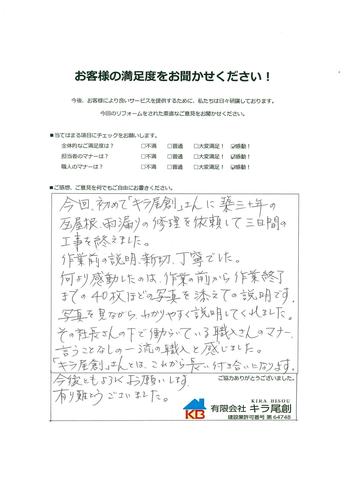 お客様の満足度をお聞かせください！
今後、お客様により良いサービスを提供するために、私たちは日々研鑽しております。
今回のリフォームをされた率直なご意見をお聞かせください。
■当てはまる項目にチェックをお願いします。
全体的なご満足度は？ □不満 □普通 □大変満足！ ☑感動！
担当者のマナーは？ □不満 □普通 □大変満足！ ☑感動！
職人のマナーは？ □不満 □普通 □大変満足！ ☑感動！
■ご感想、ご意見を何でもご自由にお書きください。
今回、初めて「キラ尾創」さんに築三十年の
瓦屋根、雨漏りの修理を依頼して三日間の
工事を終えました。
作業前の説明、親切、丁寧でした。
何より感動したのは、作業の前から作業終了
までの40枚ほどの写真を添えての説明です。
写真を見ながら、わかりやすく説明してくれました。
その社長さんの下で働らいている職人さんのマナー、
言うことなしの一流の職人と感じました。
「キラ尾創」さんとは、これから長い付き合いになります。
今後ともよろしくお願いします。
有り難とうございました。
ご協力ありがとうございました。
KIRA BISOU
KB 有限会社 キラ尾創
建設業許可番号 第64748